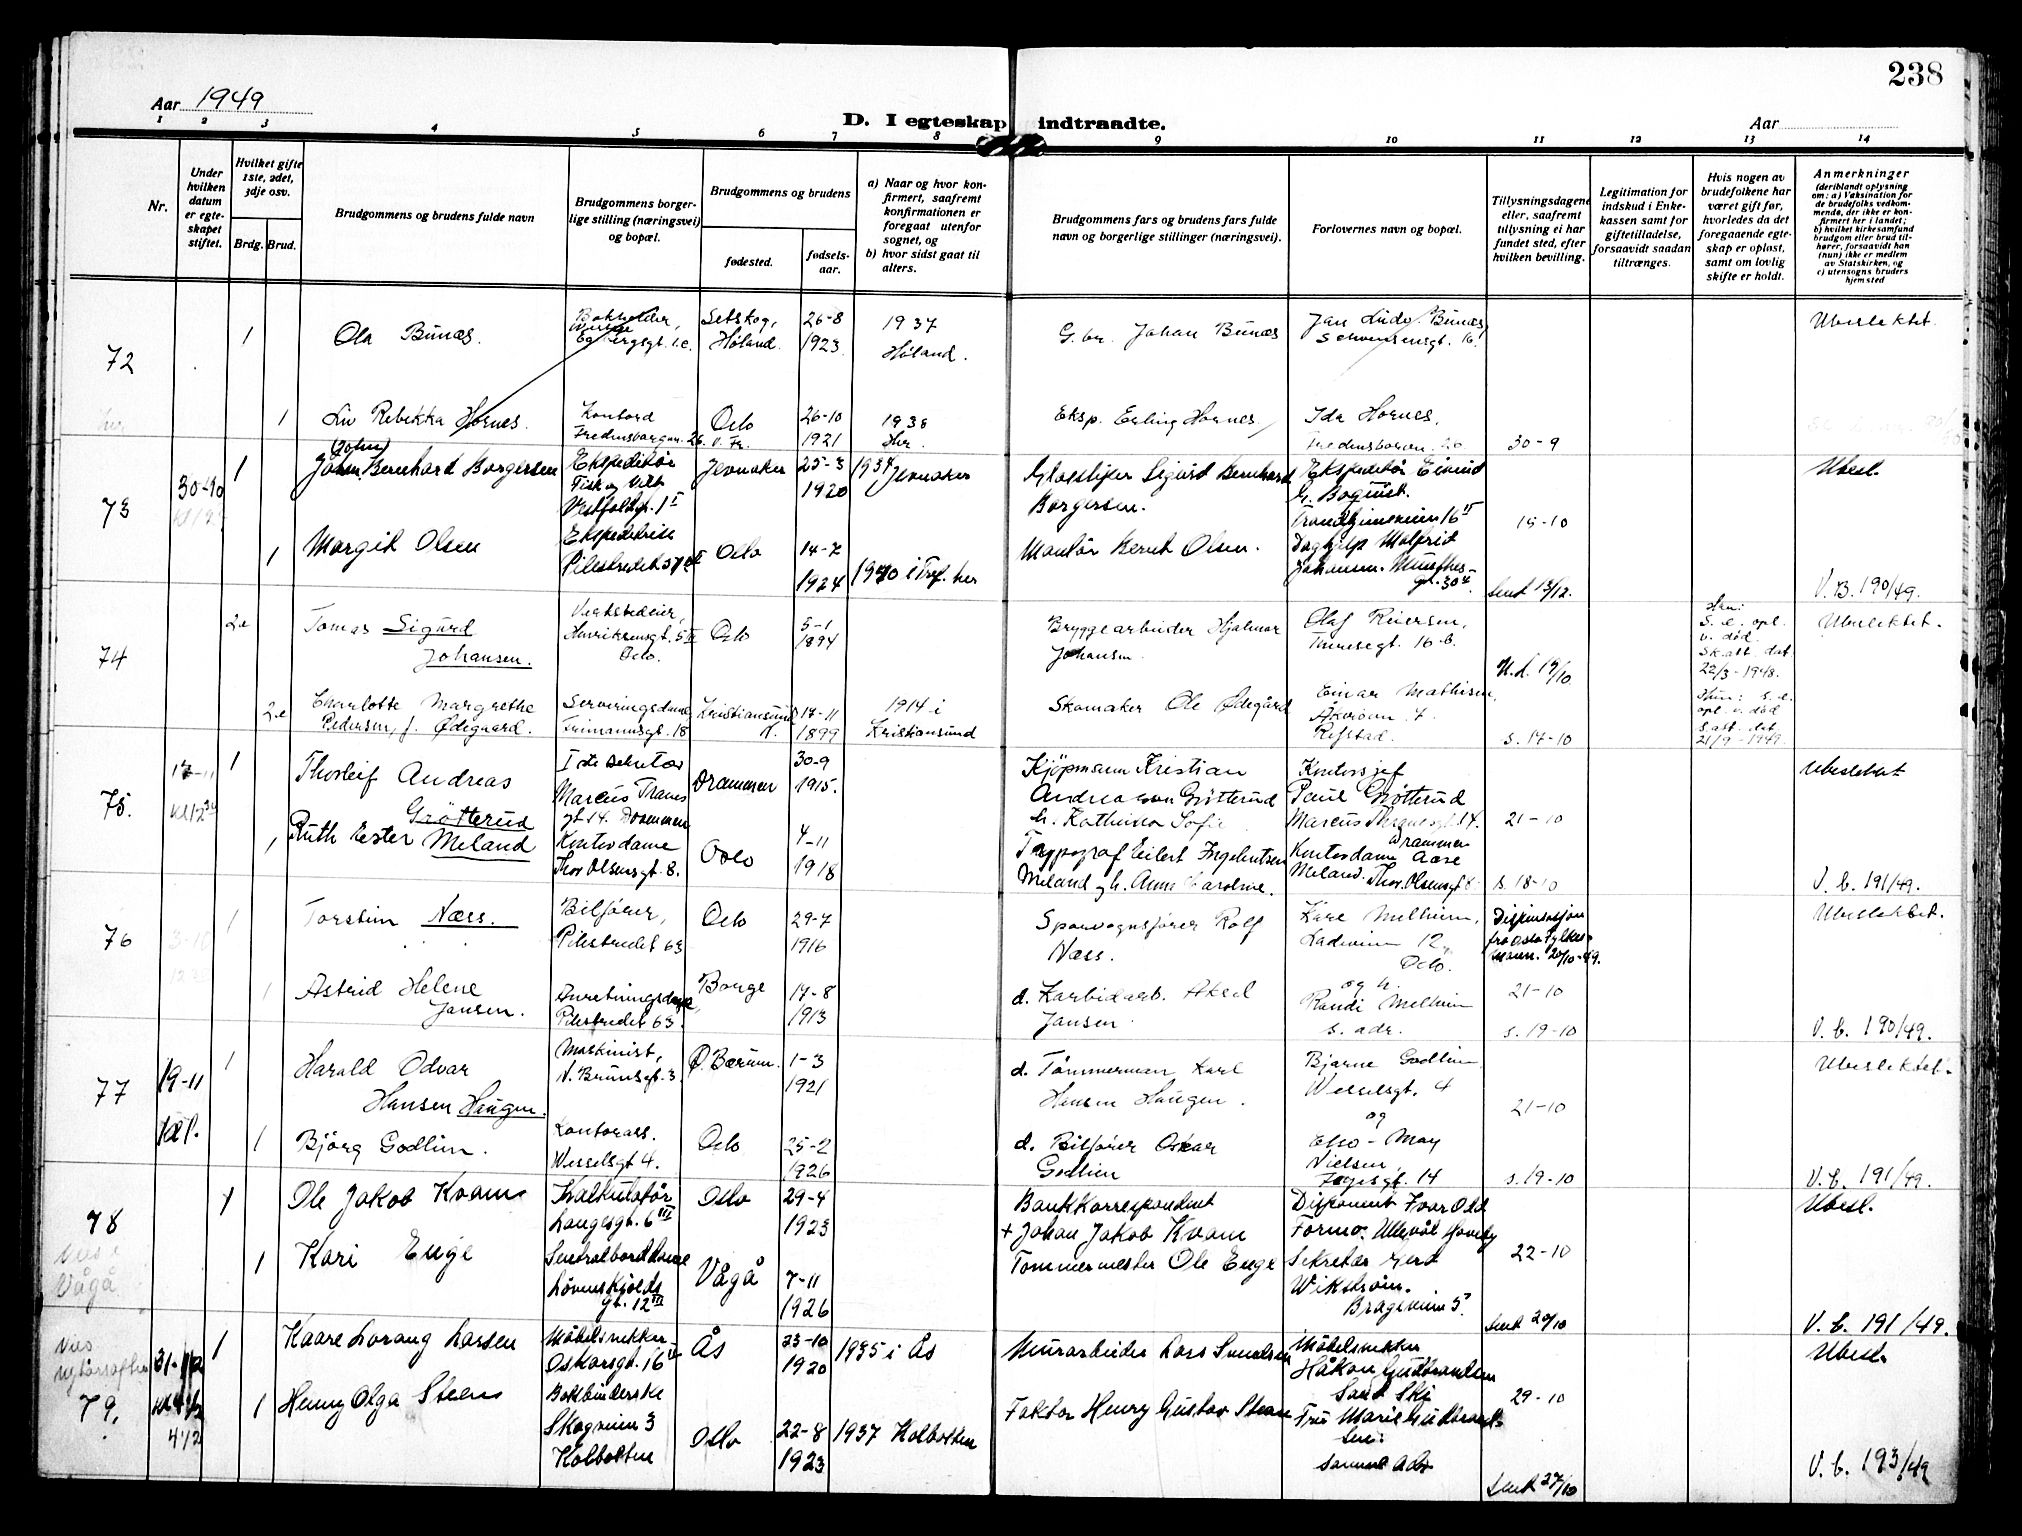 238
Aar 1949
D. I egteskap indtraadte.
Aar
1 2 3 4 5 6 7 8 9 10 11 12 13 14
Nr.
Under hvilken datum er egteskapet stiftet.
Hvilket gifte 1ste, 2det, 3dje osv.
Brdg. Brud.
Brudgommens og brudens fulde navn
Brudgommens borgerlige stilling (næringsvei) og bopæl.
Brudgommens og brudens
fødested.
fødselsaar.
a) Naar og hvor konfirmert, saafremt konfirmationen er foregaat utenfor sognet, og
b) hvor sidst gaat til alters.
Brudgommens fars og brudens fars fulde navn og borgerlige stillinger (næringsvei).
Forlovernes navn og bopæl.
Tillysningsdagene eller, saafremt tillysning ei har fundet sted, efter hvilken bevilling.
Legitimation for indskud i Enkekassen samt for giftetilladelse, forsaavidt saadan tiltrænges.
Hvis nogen av brudefolkene har været gift før, hvorledes da det foregaaende egteskap er opløst, samt om lovlig skifte er holdt.
Anmerkninger
(deriblandt oplysning om: a) Vaksination for de brudefolks vedkommende, der ikke er konfirmert her i landet; b) hvilket kirkesamfund brudgom eller brud tilhører, forsaavidt han (hun) ikke er medlem av Statskirken, og c) utensogns bruders hjemsted
72
1 Ola Bunæs. Bokholder, Setskog, Høland. 26-8 1923 1937 Høland. G.br. Johan Bunæs Jan Ludv. Bunæs Schwensensgt. 16 Ubeslektet.
1 Liv Rebekka Hornes. Kontord Fredensborgvn. 26. Oslo v. Fr. 26-10 1921 1938 Her. Eksp. Erling Hornes Ida Hornes, Fredensborgvn. 26 30-9
73
30-10 1 (John) Johan Bernhard Borgersen Ekspeditør Fisk og Vilt Vestfoldgt. 1 I Jevnaker 25-3 1920 1934 Jevnaker Glassliper Sigurd Bernhard Borgersen. Ekspeditør Eivind G. Boquist. Trondhjemsveien 16 II 15-10 Ubesl.
1 Margit Olsen Ekspeditrise Pilestredet Oslo 14-7 1924 1940 i Tref. her Montør Bernt Olsen. Daghjelp Malfrid Johansen. Munthesgt. 30 4 Sendt 17/12. V.B. 190/49.
74
2e Tomas Sigurd Johansen. Verkstedeier, Henriksensgt. 5 II Oslo. Oslo 5-1 1894 Bryggearbeider Hjalmar Johansen Olaf Reiersen, Theresegt. 16 b. U.d. 19/10 Han: S. e. opl. v. død. Sk.att. dat 22/3-1948. Ubeslektet.
2e Charlotte Margrethe Pedersen, f. Ødegaard. Serveringsdame Frimannsgt. 18 Kristiansund N. 17-11 1899 1914 i Kristiansund Skomaker Ole Ødegård Einar Mathisen, Åkrøvn. 4. Refstad. s. 17-10 Hun: S. e. opl. v. død s.att. dat. 21/9-1949.
75.
17-11 1 Thorleif Andreas Grøtterud I ste sekretær Marcus Thranes gt. 14. Drammen Drammen 30-9 1915. Kjøpmann Kristian Andreassen Grøtterud h. Kathinka Sofie Kontorsjef Paul Grøtterud Marcus Thranesgt 14. Drammen 21-10 Ubeslektet
kl 12 30 1 Ruth Ester Meland Kontordame Thor Olsensgt. 8. Oslo 4-11 1918 Typograf Eilert Ingebretsen Meland og h. Anna Karoline. Kontordame Aase Meland. Thor Olsensgt 8. s. 18-10 V. b. 191/49.
76
1 Torstein Næss. Bilfører, Pilestredet 63 Oslo 29-7 1916 Sporvognsfører Rolf Næss. Kåre Melheim, Ladeveien 12, Oslo. og h. Dispensasjon fra Oslo Fylkesmann. 20/10-49. Ubeslektet.
1 Astrid Helene Jansen. Anretningsdame, Pilestredet 63. Borge 17-8 1913 d. Karbidarb. Aksel Jansen. Randi Melheim s. adr. 21-10 s. 19-10 V. b. 190/49.
77
19-11 1 Harald Odvar Hansen Haugen. Maskinist, N. Brunsgt. 3 Ø. Bærum. 1-3 1921 d. Tømmermann Karl Hansen Haugen. Bjarne Godlien Wesselsgt. 4 og 21-10 Ubeslektet.
1 Bjørg Godlien. Kontorass. Wesselsgt 4. Oslo 25-2 1926 d. Bilfører Oskar Godlien Else-May Nielsen, gt. 14 s. 19-10 V. b. 191/49.
78
Vies i Vågå
1 Ole Jakob Kvam Kalkulatør Langesgt. 6 III Oslo 29-4 1923 Bankkorrespondent + Johan Jakob Kvam Disponent Ivar Odd Formo. Ullevål Haveby 22-10 Ubesl.
1 Kari Enge Sentralborddame Løvenskjolds gt. 12 III Vågå 7-11 1926 Tømmermester Ole Enge Sekretær Gerd Wikstrøm. Brageveien 5 Sendt 20/10 V. b. 191/49.
Vies nyttårsaften
79.
31-12 kl 4 1/2 1 Kaare Lorang Larsen Møbelsnekker- Oskarsgt. 16 Ås 23-10 1920 1935 i Ås Murarbeider Lars Svendsen Møbelsnekker Håkon Gudbrandsen Sand Ski 29-10 Ubesl.
1 Henny Olga Steen Bokbinderske Skogveien 3 Kolbotten Oslo 22-8 1923 1937 Kolbotten Faktor Henry Gustav Steen Fru Marie Gudbrandsen: samme Adr Sendt 27/10 V. b. 193/49